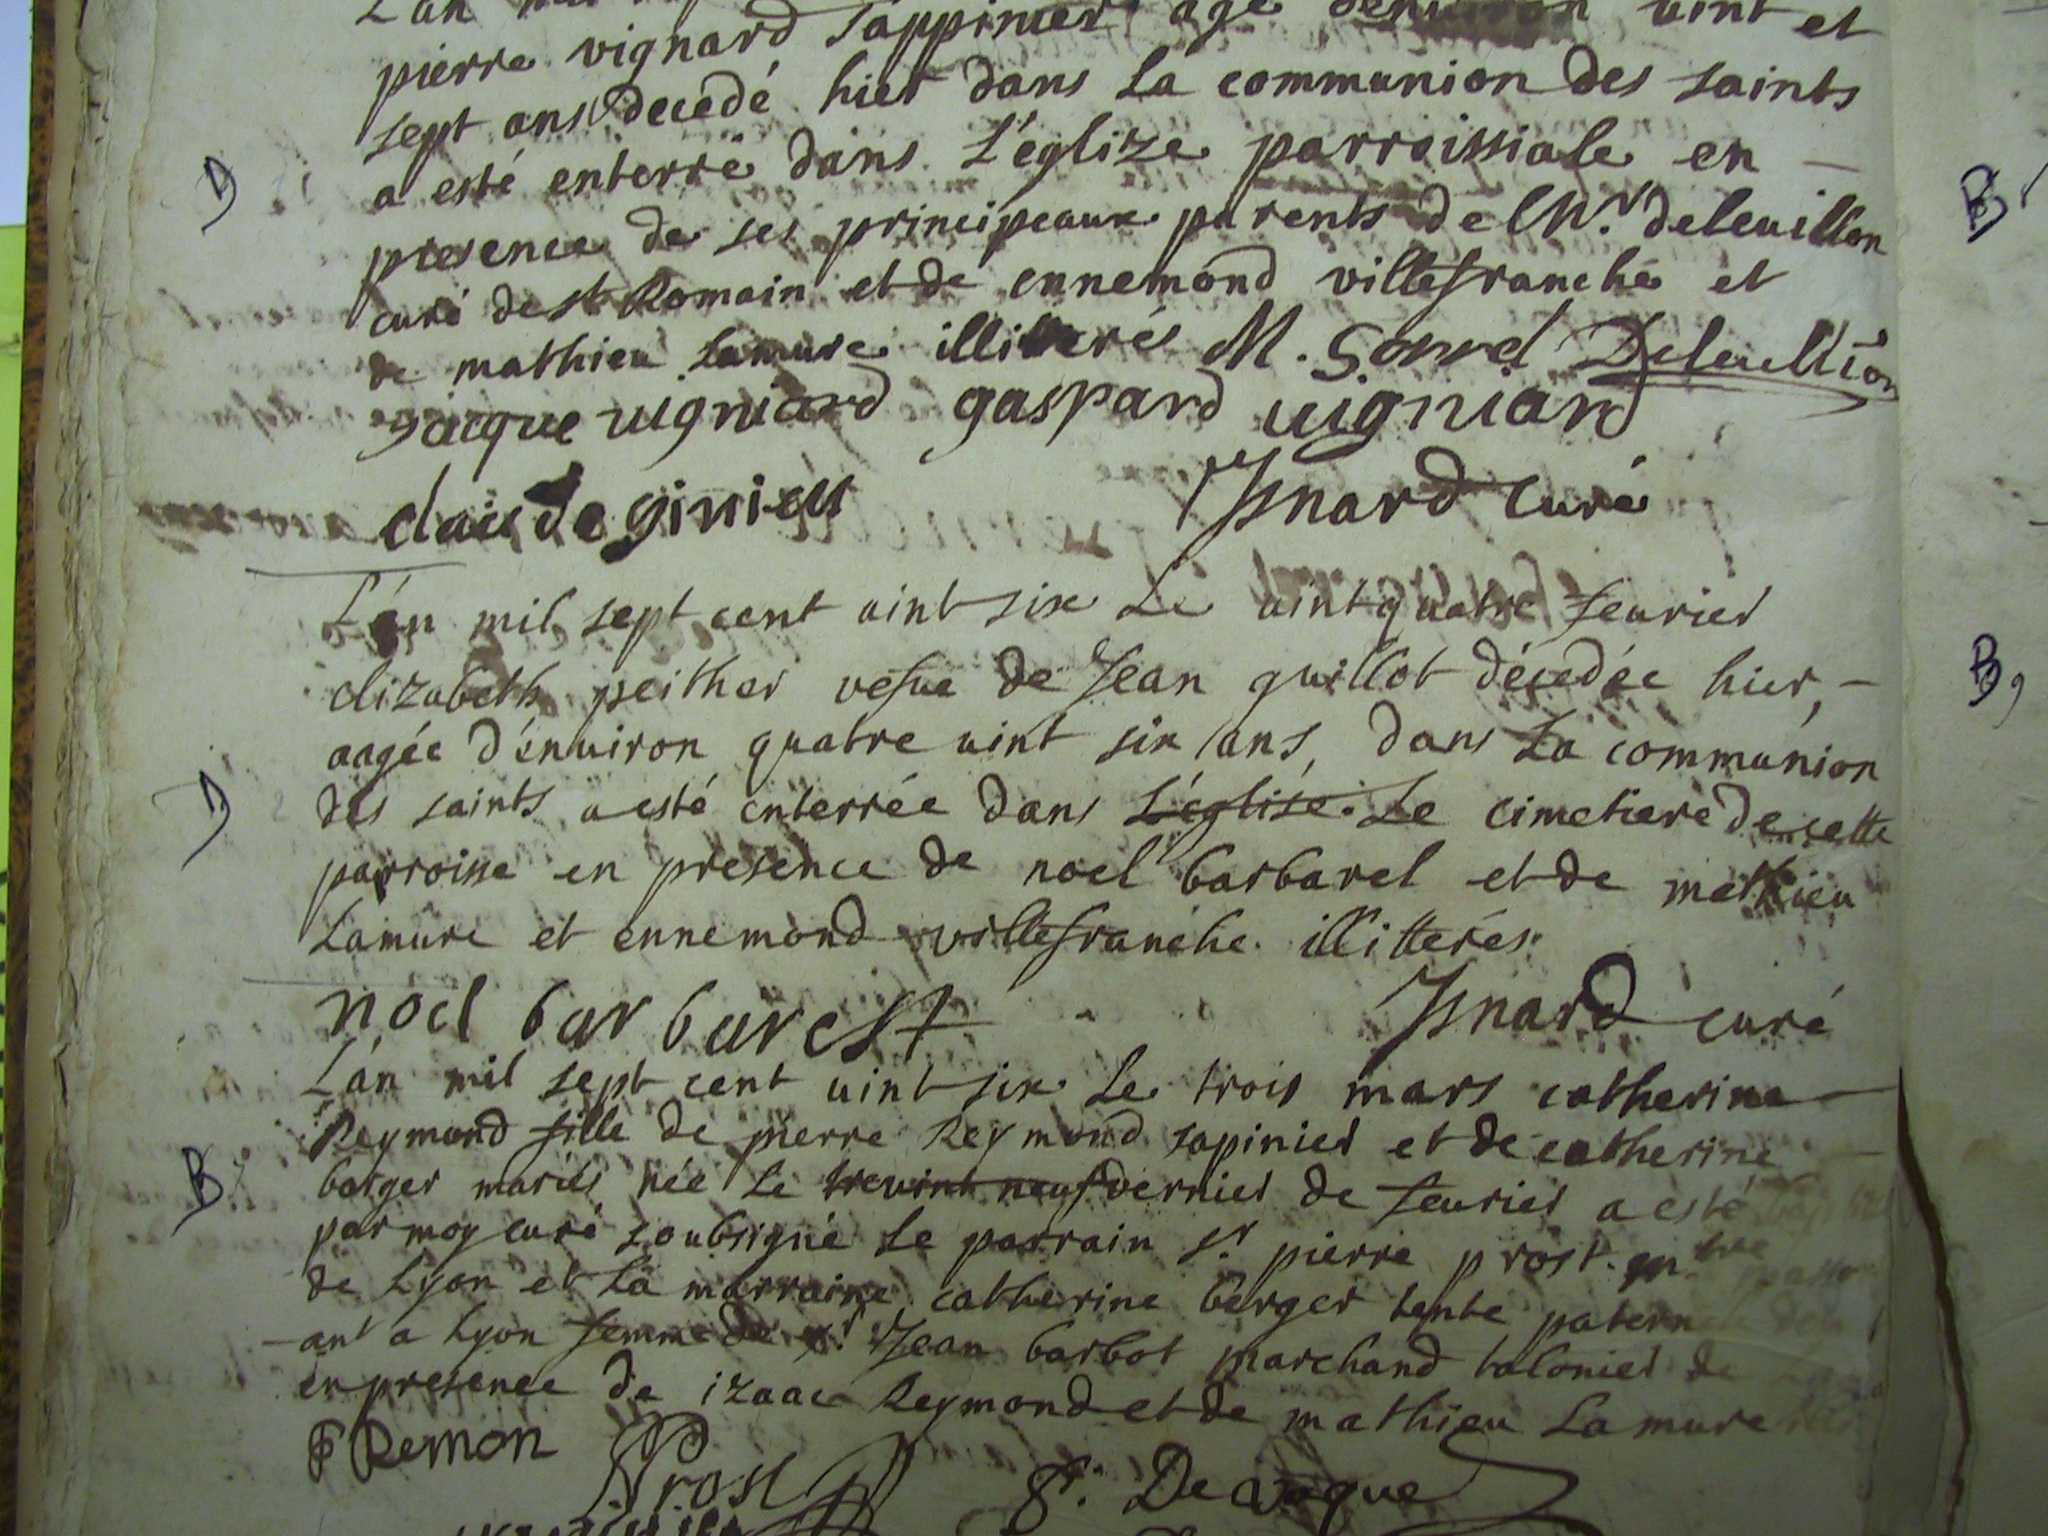 L'an mil
pierre vignard sappinier agé d'enuiron uint et
sept ans decedé hier dans La communion des saints
D
a esté enterré dans L'églize parroissiale en
presence de ses principeaux parents de Mr. deleuillon
curé de st Romain et de ennemond villefranche et
de mathieu Lamure illiterés M. Sonnel Deleullion
Jacque uigniard gaspard uigniard
claude ginieu Isnard curé
L'an mil sept cent uint six Le uint quatre feurier
elizabeth peither vefue de Jean guillot décedée hier,
aagée d'enuiron quatre uint six ans, dans La communion
D
des saints a esté enterrée dans L'église. Le cimetiere de cette
parroisse en presence de noel barbarel et de mathieu
Lamure et ennemond villefranche illitterés
noel barbarest Isnard curé
L'an mil sept cent uint six Le trois mars catherine
Reymond fille de pierre Reymond sapinier et de catherine
B
berger mariés née Le uint neuf dernier de feurier a esté
par moy curé soubsigné Le parrain sr pierre prost
de Lyon et La marraine catherine berger tente patern
ant a Lyon femme de sr Jean barbot marchand talonier de
en presence de izaac Reymond et de mathieu Lamure
P Remon Prost
B
B